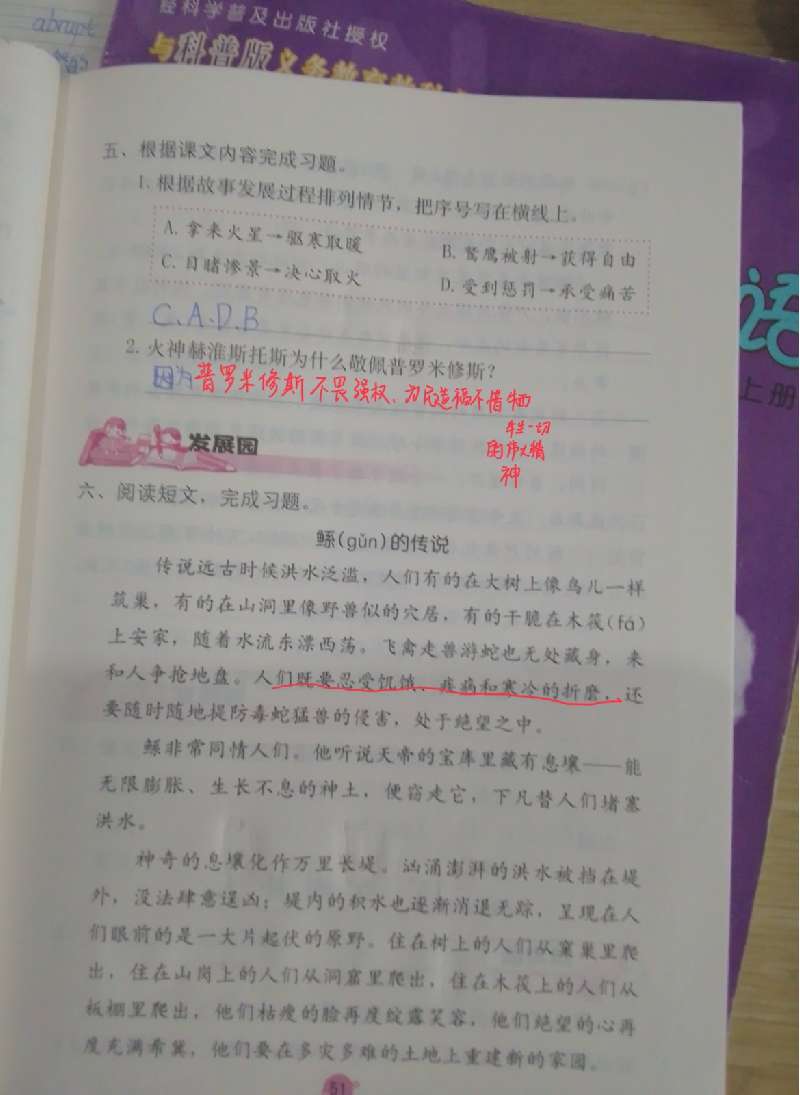 abrupt
经科学普及出版社授权
与科普版义务教育教科
语
上册
五、根据课文内容完成习题。
1. 根据故事发展过程排列情节，把序号写在横线上。
A. 拿来火星→驱寒取暖
B. 鹫鹰被射→获得自由
C. 目睹惨景→决心取火
D. 受到惩罚→承受痛苦
C.A.D.B
2. 火神赫淮斯托斯为什么敬佩普罗米修斯？
因为普罗米修斯不畏强权、为民造福不惜牺
牲一切
的伟大精
神
发展园
六、阅读短文，完成习题。
鲧(gǔn)的传说
传说远古时候洪水泛滥，人们有的在大树上像鸟儿一样
筑巢，有的在山洞里像野兽似的穴居，有的干脆在木筏(fá)
上安家，随着水流东漂西荡。飞禽走兽游蛇也无处藏身，来
和人争抢地盘。人们既要忍受饥饿、疾病和寒冷的折磨，还
要随时随地提防毒蛇猛兽的侵害，处于绝望之中。
鲧非常同情人们。他听说天帝的宝库里藏有息壤——能
无限膨胀、生长不息的神土，便窃走它，下凡替人们堵塞
洪水。
神奇的息壤化作万里长堤。汹涌澎湃的洪水被挡在堤
外，没法肆意逞凶；堤内的积水也逐渐消退无踪，呈现在人
们眼前的是一大片起伏的原野。住在树上的人们从窠巢里爬
出，住在山岗上的人们从洞窟里爬出，住在木筏上的人们从
板棚里爬出，他们枯瘦的脸再度绽露笑容，他们绝望的心再
度充满希冀，他们要在多灾多难的土地上重建新的家园。
51